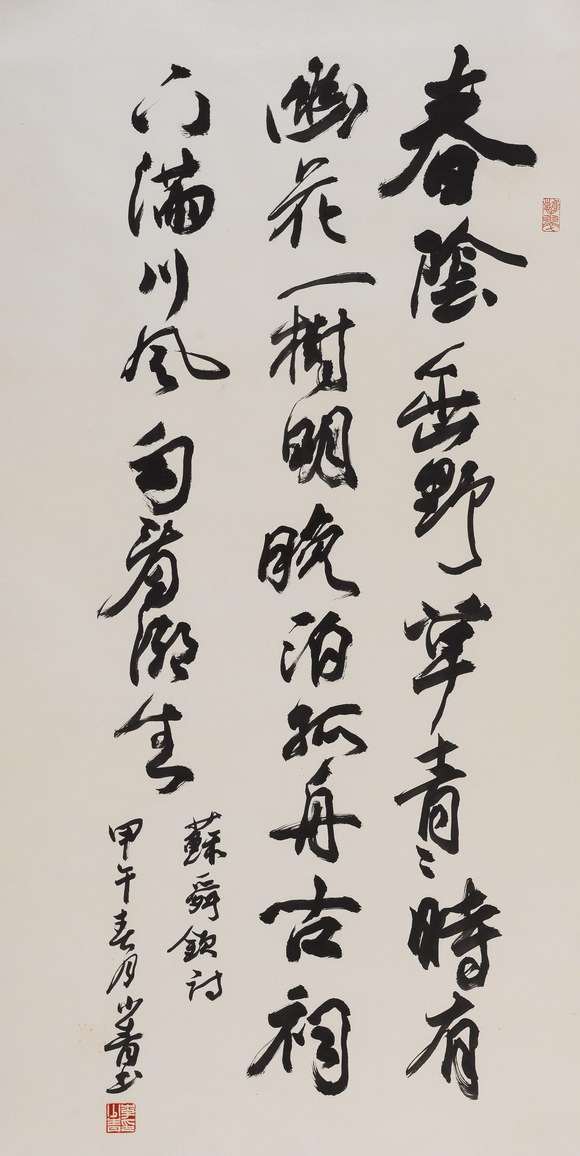 春陰垂野草青々時有
幽花一樹明晚泊孤舟古祠
下滿川風雨看潮生
蘇舜欽詩
甲午春月青書